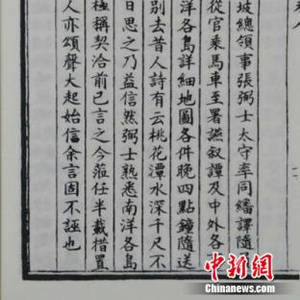 坡總領事張弼士太守率同繙譯隨
從官乘馬車至署讌敘譚及中外各
洋各島詳細地圖各件晚四點鐘隨送
別去昔人詩有云桃花潭水深千尺不
日思之乃益信然弼士熟悉南洋各島
極稱契洽前已言之今蒞任半載措置
人亦頌聲大起始信余言固不誣也
中新網
Chinanews.com